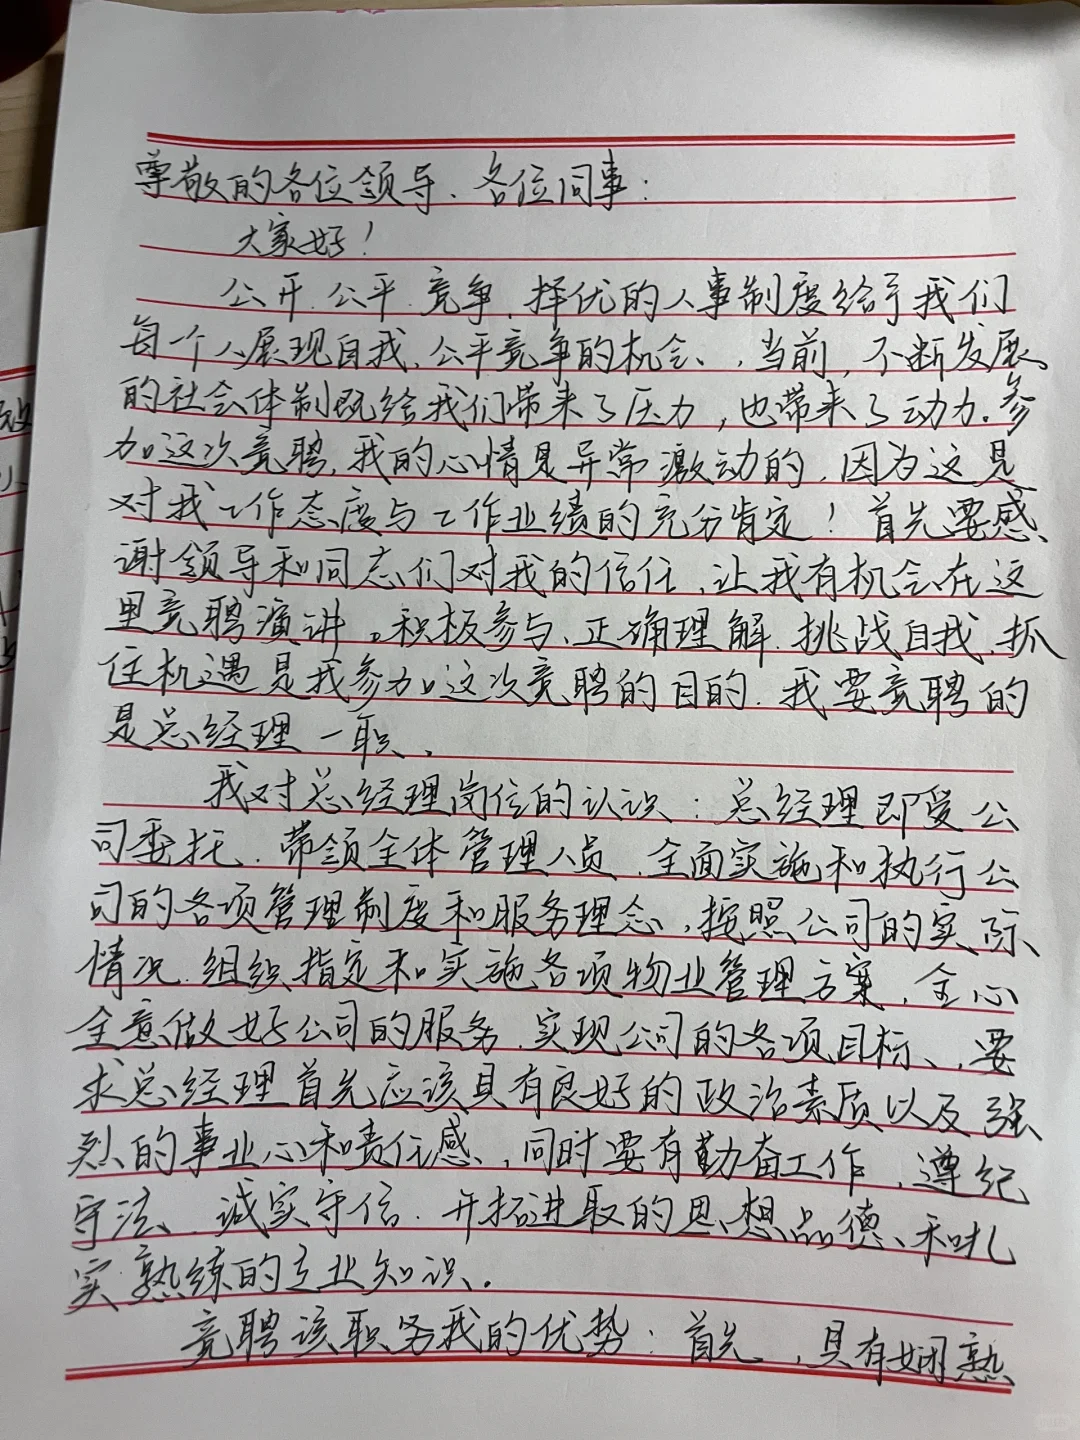 尊敬的各位领导、各位同事：
大家好！
公开、公平、竞争、择优的人事制度给予我们
每一个人展现自我、公平竞争的机会、，当前，不断发展
的社会体制既给我们带来了压力，也带来了动力.参
加这次竞聘，我的心情是异常激动的，因为这是
对我工作态度与工作业绩的充分肯定！首先要感
谢领导和同志们对我的信任，让我有机会在这
里竞聘演讲。积极参与、正确理解、挑战自我、抓
住机遇是我参加这次竞聘的目的.我要竞聘的
是总经理一职、
我对总经理岗位的认识：总经理即受公
司委托、带领全体管理人员、全面实施和执行公
司的各项管理制度和服务理念，按照公司的实际
情况、组织指定和实施各项物业管理方案，全心
全意做好公司的服务、实现公司的各项目标、，要
求总经理首先应该具有良好的政治素质以及强
烈的事业心和责任感、，同时要有勤奋工作、遵纪
守法、诚实守信、开拓进取的思想品德、和扎
实熟练的专业知识。
竞聘该职务我的优势：首先，具有娴熟